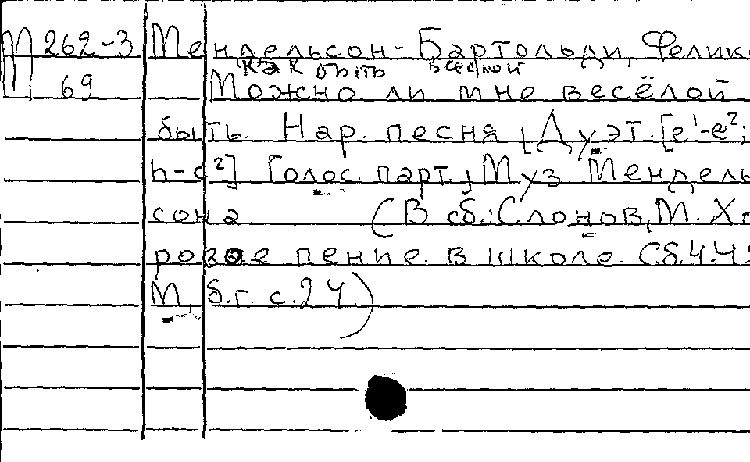 М 262-3 Мендельсон-Бартольди, Феликс
как быть веселой
69 Можно ли мне весёлой
быть. Нар. песня, Дуэт. [e¹-e²;
h-c²] Голос. парт., Муз Мендель
сона (В сб.: Слонов, М. Хо
ровое пение в школе. Сб.4. Ч.
М., б.г. с.24)